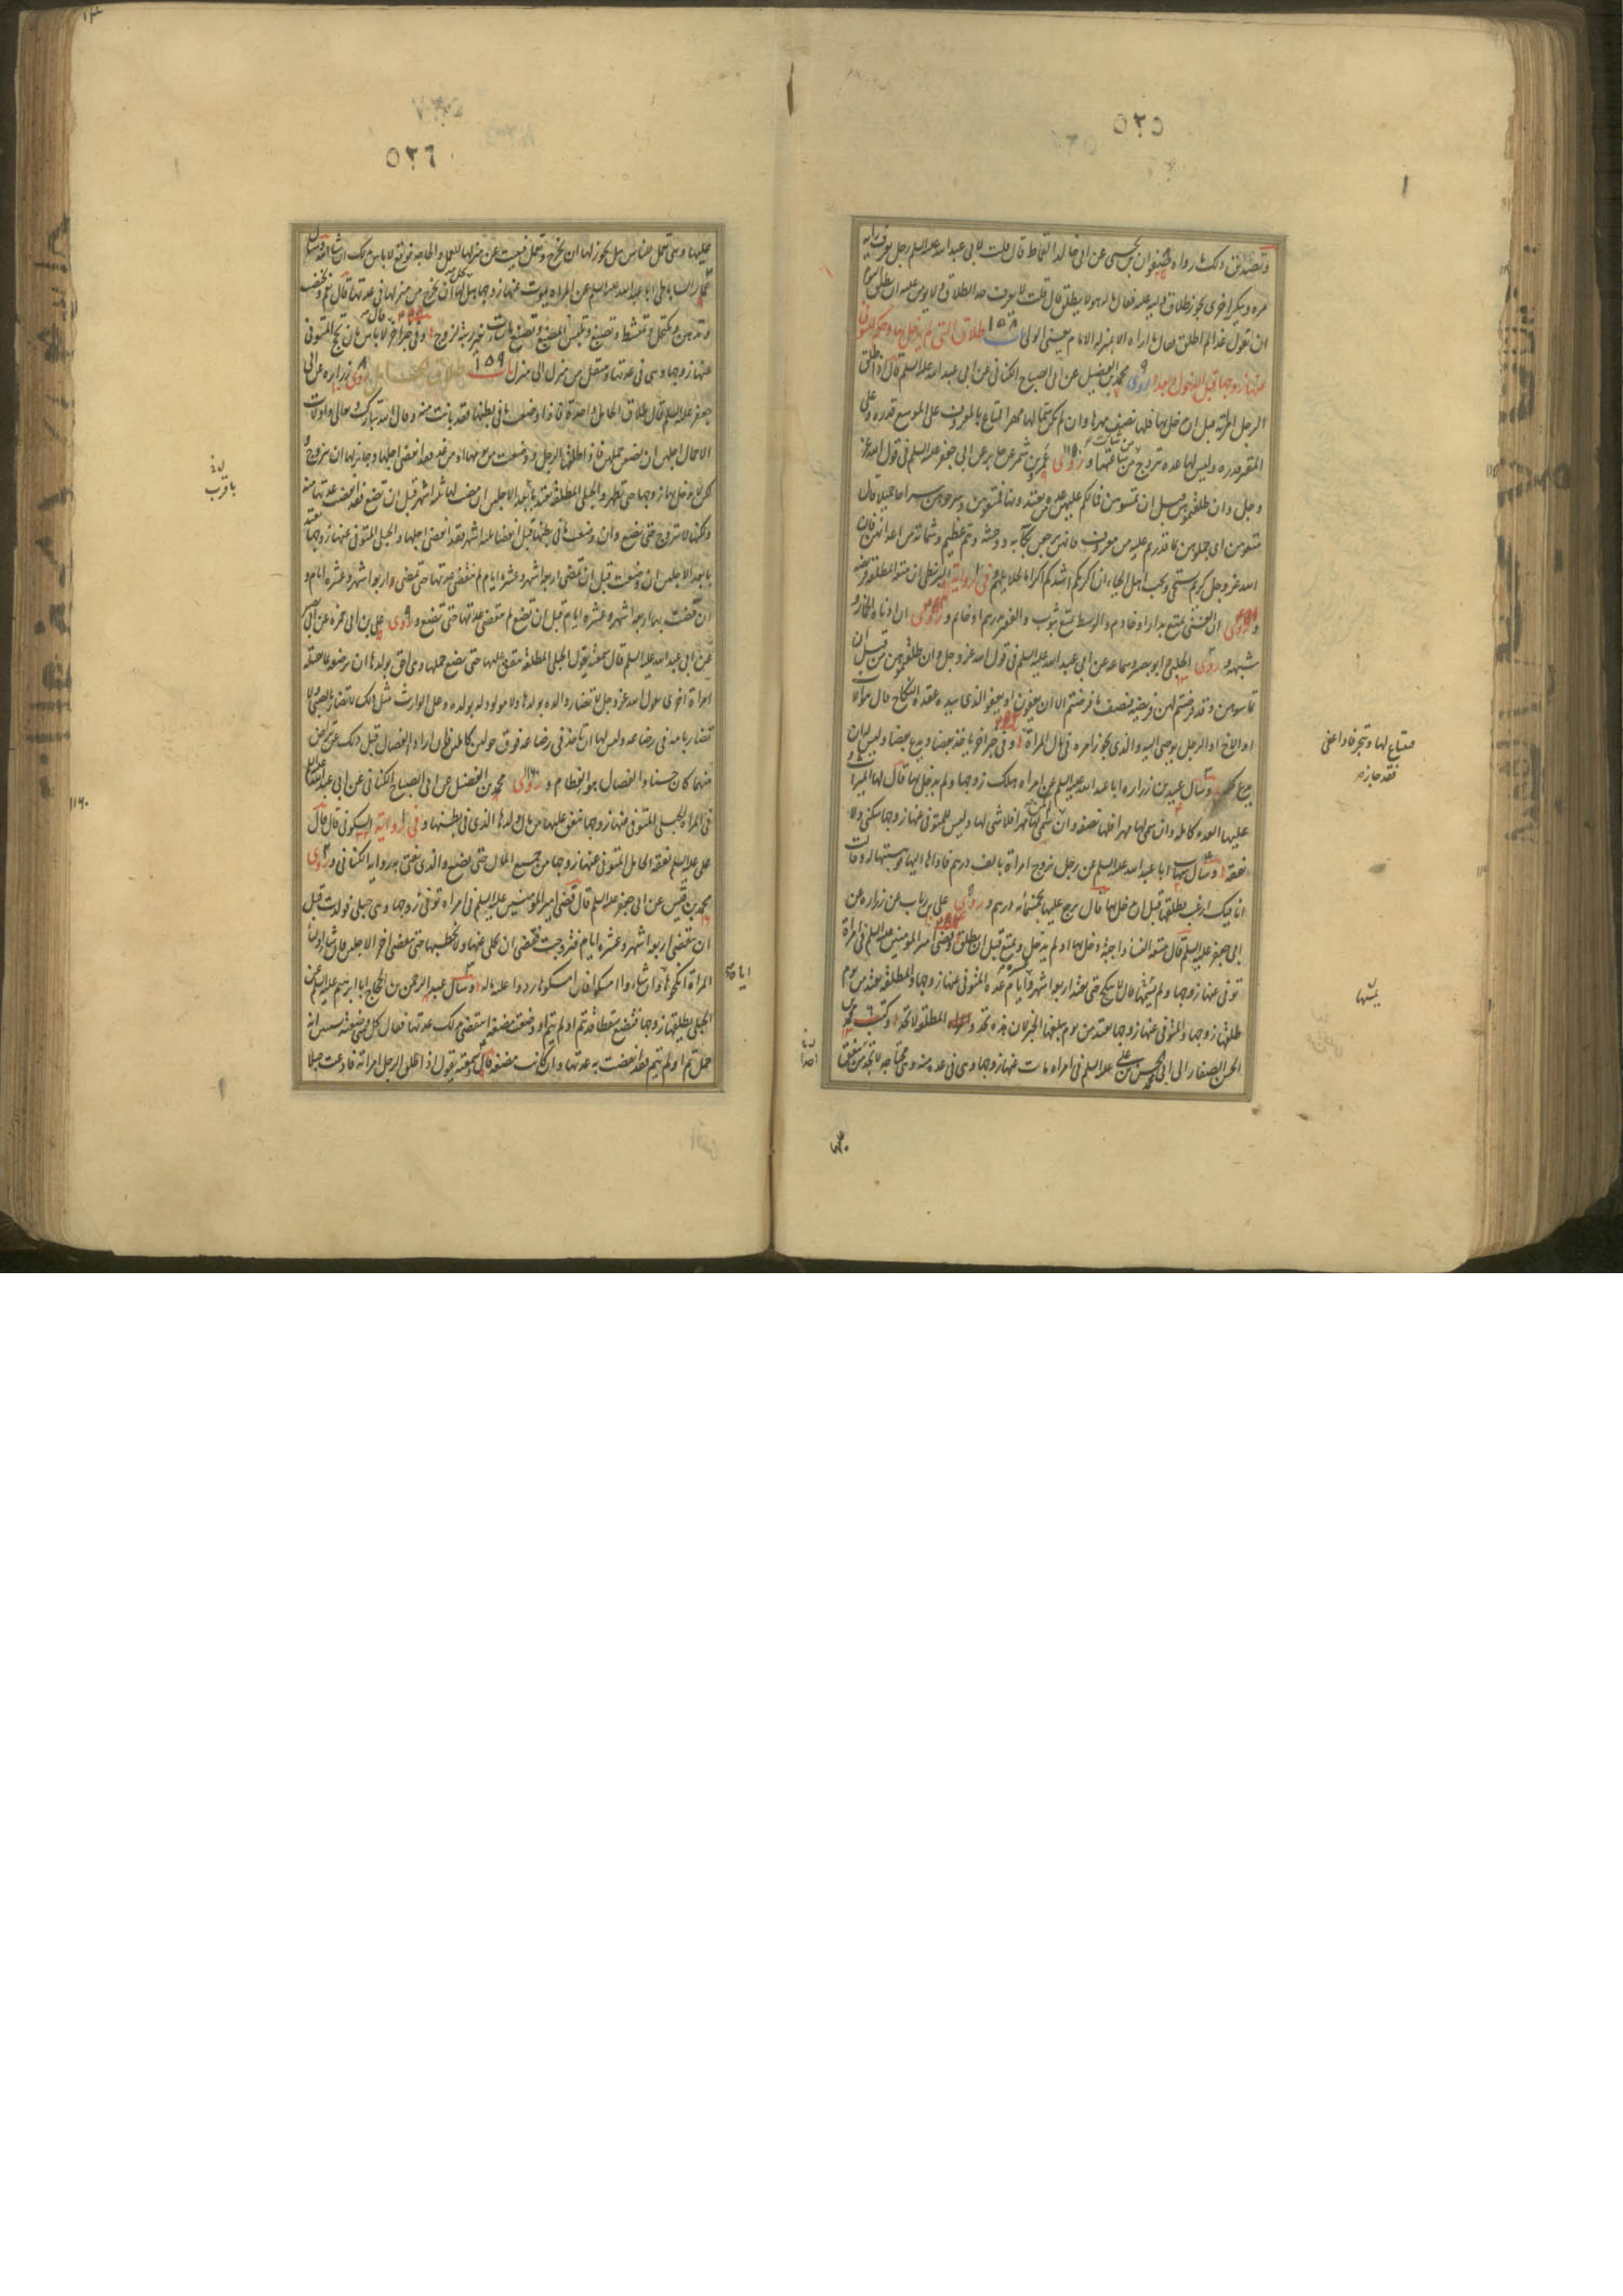 ٥٢٥
وتصديق ذلك ما رواه صفوان بن يحيى عن ابى خالد القماط قال قلت لابى عبد الله عليه السلم رجل يعرف رايه
مره وينكره اخرى يجوز طلاق وليه عليه فقال ماله هو لا يطلق قال قلت لا يعرف حد الطلاق ولا يومن عليه ان طلق اليوم
ان يقول غدا لم اطلق فقال ما اراه الا بمنزله الامام يعنى الولى باب ١٥٨ طلاق التى لم يدخل بها وحكم المتوفى
عنها زوجها قبل الدخول وبعده روى محمد بن الفضيل عن ابى الصباح الكنانى عن ابى عبد الله عليه السلم قال اذا طلق
الرجل امراته قبل ان يدخل بها فلها نصف مهرها وان لم يكن سمى لها مهرا فمتاع بالمعروف على الموسع قدره وعلى
المقتر قدره وليس لها عده تزوج من شاءت من ساعتها وروى عمرو بن شمر عن جابر عن ابى جعفر عليه السلم فى قول الله عز
وجل وان طلقتموهن من قبل ان تمسوهن فما لكم عليهن من عده تعتدونها فمتعوهن وسرحوهن سراحا جميلا قال
متعوهن اى جملوهن بما قدرتم عليه من معروف فانهن يرجعن بكآبه ووحشه وهم عظيم وشماته من اعدائهن فان
الله عز وجل كريم يستحيى ويحب اهل الحياء ان اكرمكم اشدكم اكراما لحلايلهم وفى روايه البزنطى ان متعه المطلقه فريضه
وروى ان الغنى يمتع بدار او خادم والوسط يمتع بثوب والفقير بدرهم او خاتم وروى ان ادناه الخمار و
شبهه وروى الحلبى وابو بصير وسماعه عن ابى عبد الله عليه السلم فى قول الله عز وجل وان طلقتموهن من قبل ان
تمسوهن وقد فرضتم لهن فريضه فنصف ما فرضتم الا ان يعفون او يعفو الذى بيده عقده النكاح قال هو الاب
او الاخ او الرجل يوصى اليه والذى يجوز امره فى مال المراة وفى خبر اخر ياخذ بعضا ويدع بعضا وليس له ان
يدع كله وسال عبيد بن زراره ابا عبد الله عليه السلم عن امراه هلك زوجها ولم يدخل بها قال لها الميراث و
عليها العده كامله وان سمى لها مهرا فلها نصفه وان لم يكن سمى لها مهرا فلا شى لها وليس للمتوفى عنها زوجها سكنى ولا
نفقه وسال شهاب ابا عبد الله عليه السلم عن رجل تزوج امراة بالف درهم فاداها اليها فوهبتها له وقالت
انا فيك ارغب فطلقها قبل ان يدخل بها قال يرجع عليها بخمسمائه درهم وروى على بن رئاب عن زراره عن
ابى جعفر عليه السلم قال متعه النساء واجبة دخل بها او لم يدخل ويمتع قبل ان يطلق وقضى امير المومنين عليه السلم فى امرأة
توفى عنها زوجها ولم يمسها قال لا تنكح حتى تعتد اربعه اشهر وعشره ايام عده المتوفى عنها زوجها والمطلقه تعتد من يوم
طلقها زوجها والمتوفى عنها زوجها تعتد من يوم يبلغها الخبر لان هذه تحد والمطلقه لا تحد وكتب محمد بن
الحسن الصفار الى ابى محمد الحسن بن على عليه السلم فى امراه مات عنها زوجها وهى فى عده منه وهى محتاجه لا تجد من ينفق
فتاع لها
فقد جاز هـ
يمسها
٥٢٦
عليها وهى تعمل للناس هل يجوز لها ان تخرج وتعمل وتبيت عن منزلها للعمل والحاجه فوقع لا باس بذلك ان شاء الله وسال
عمار الساباطى ابا عبد الله عليه السلم عن المراه يموت عنها زوجها هل يحل لها ان تخرج من منزلها فى عدتها قال نعم وتختضب
وتدهن وتكتحل وتمتشط وتصبغ وتلبس المصبغ وتصنع ما شاءت بغير زينه لزوج وفى خبر اخر قال لا باس بان تحج المتوفى
عنها زوجها وهى فى عدتها وتنتقل من منزل الى منزل باب ١٥٩ طلاق الحامل روى زراره عن ابى
جعفر عليه السلم قال طلاق الحامل واحدة فاذا وضعت ما فى بطنها فقد بانت منه وقال الله تبارك وتعالى واولات
الاحمال اجلهن ان يضعن حملهن فاذا طلقها الرجل ووضعت من يومها او من غد فقد انقضى اجلها وجائز لها ان تتزوج و
لكن لا يدخل بها زوجها حتى تطهر والحبلى المطلقه تعتد باقرب الاجلين ان مضت لها ثلثه اشهر قبل ان تضع فقد انقضت عدتها منه
ولكنها لا تتزوج حتى تضع وان وضعت ما فى بطنها قبل انقضاء ثلثه اشهر فقد انقضى اجلها والحبلى المتوفى عنها زوجها تعتد
بابعد الاجلين ان وضعت قبل ان تمضى اربعه اشهر وعشره ايام لم تنقض عدتها حتى تمضى اربعه اشهر وعشره ايام و
ان مضت لها اربعه اشهر وعشره ايام قبل ان تضع لم تنقض عدتها حتى تضع وروى على بن ابى حمزه عن ابى بصير
عن ابى عبد الله عليه السلم قال سمعته يقول الحبلى المطلقه ينفق عليها حتى تضع حملها وهى احق بولدها ان ترضعه بما تقبله
امراة اخرى يقول الله عز وجل لا تضار والده بولدها ولا مولود له بولده وعلى الوارث مثل ذلك لا يضار بالصبى ولا
يضار بامه فى رضاعه وليس لها ان تاخذ فى رضاعه فوق حولين كاملين فان ارادا الفصال قبل ذلك عن تراض
منهما كان حسنا والفصال هو الفطام وروى محمد بن الفضيل عن ابى الصباح الكنانى عن ابى عبد الله عليه السلم
فى المراه الحبلى المتوفى عنها زوجها ينفق عليها من مال ولدها الذى فى بطنها وفى روايه السكونى قال قال
على عليه السلم نفقه الحامل المتوفى عنها زوجها من جميع المال حتى تضع والذى نفتى به روايه الكنانى وروى
محمد بن قيس عن ابى جعفر عليه السلم قال قضى امير المومنين عليه السلم فى امراه توفى زوجها وهى حبلى فولدت قبل
ان تنقضى اربعه اشهر وعشره ايام فتزوجت فقضى ان يخلى عنها ولا يخطبها حتى ينقضى اخر الاجلين فان شاء اولياء
المرأة انكحوها وان شاءوا امسكوها فان امسكوها ردوا عليه ماله وسال عبد الرحمن بن الحجاج ابا ابرهيم عليه السلم عن
الحبلى يطلقها زوجها فتضع سقطا قد تم او لم يتم او وضعته مضغه اتنقضى بذلك عدتها فقال كل شى وضعته يستبين انه
حمل تم او لم يتم فقد انقضت به عدتها وان كانت مضغه قال وسمعته يقول اذا طلق الرجل امراته فادعت حبلا
باقرب
١١٦٠